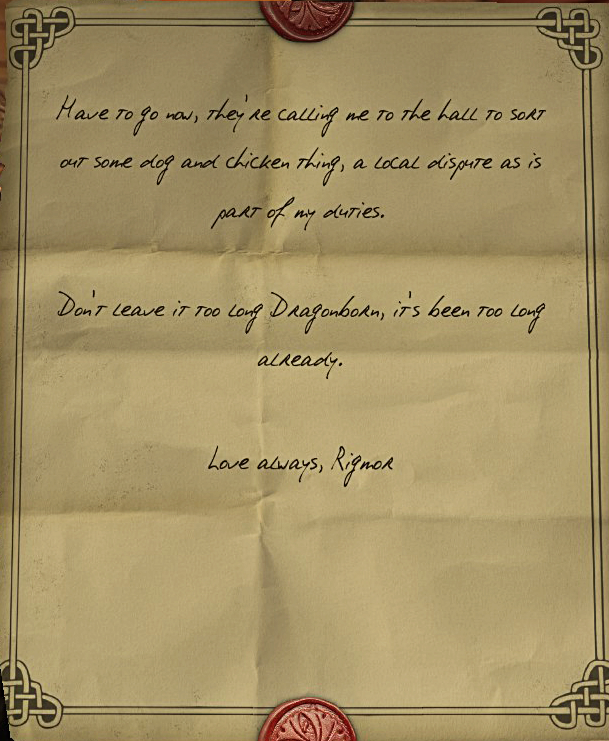 Have to go now, they're calling me to the hall to sort
out some dog and chicken thing, a local dispute as is
part of my duties.
Don't leave it too long Dragonborn, it's been too long
already.
Love always, Rigmor